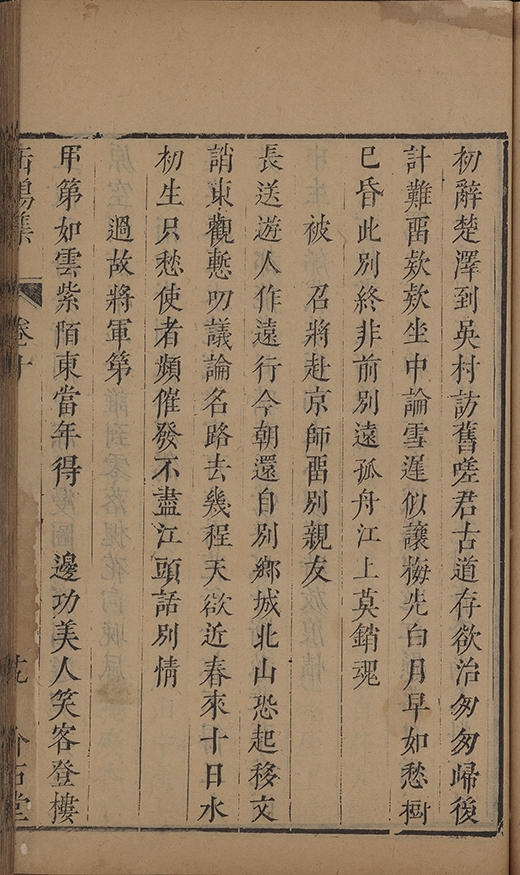 初辭楚澤到吳村訪舊嗟君古道存欲治匆匆歸後
計難畱欵欵坐中論雪遲似讓梅先白月早如愁樹
已昏此別終非前別遠孤舟江上莫銷魂
被 召將赴京師畱別親友
長送遊人作遠行今朝還自別鄉城北山恐起移文
誚東觀慙叨議論名路去幾程天欲近春來十日水
初生只愁使者頻催發不盡江頭話別情
過故將軍第
甲第如雲紫陌東當年得 邊功美人笑客登樓
卷十